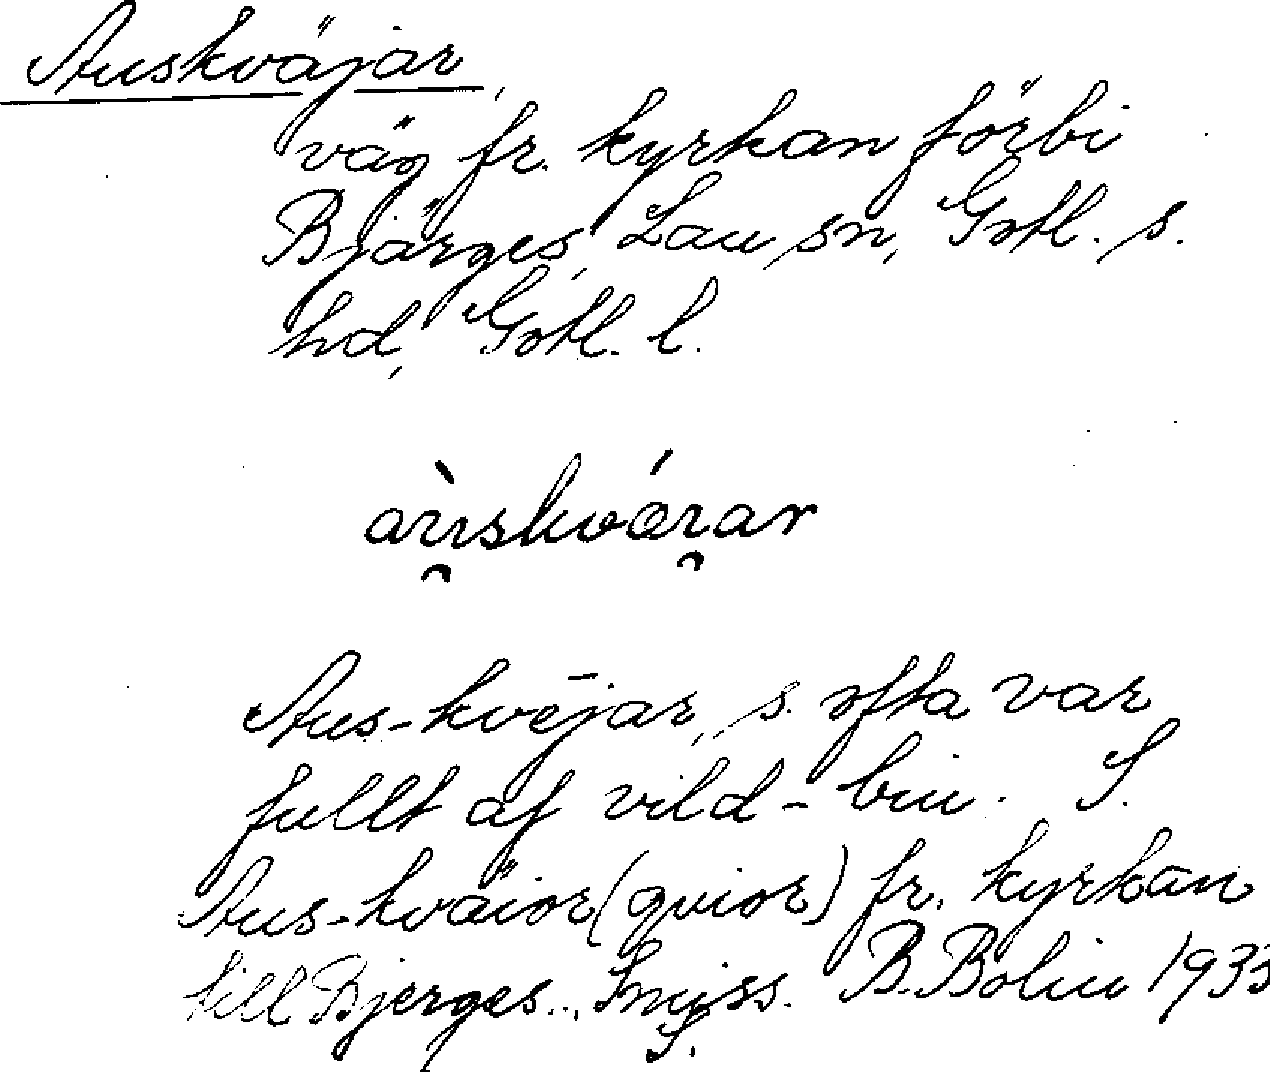 Auskväjar,
väg fr. kyrkan förbi
Bjärges, Lau sn, Gotl. s.
hd, Gotl. l.
Aus-kvējar, s. ofta var
fullt af vild-biu. S.
Aus-kväior (qvior) fr. kyrkan
till Bjerges.., Smiss. B. Bolin 1933
S.